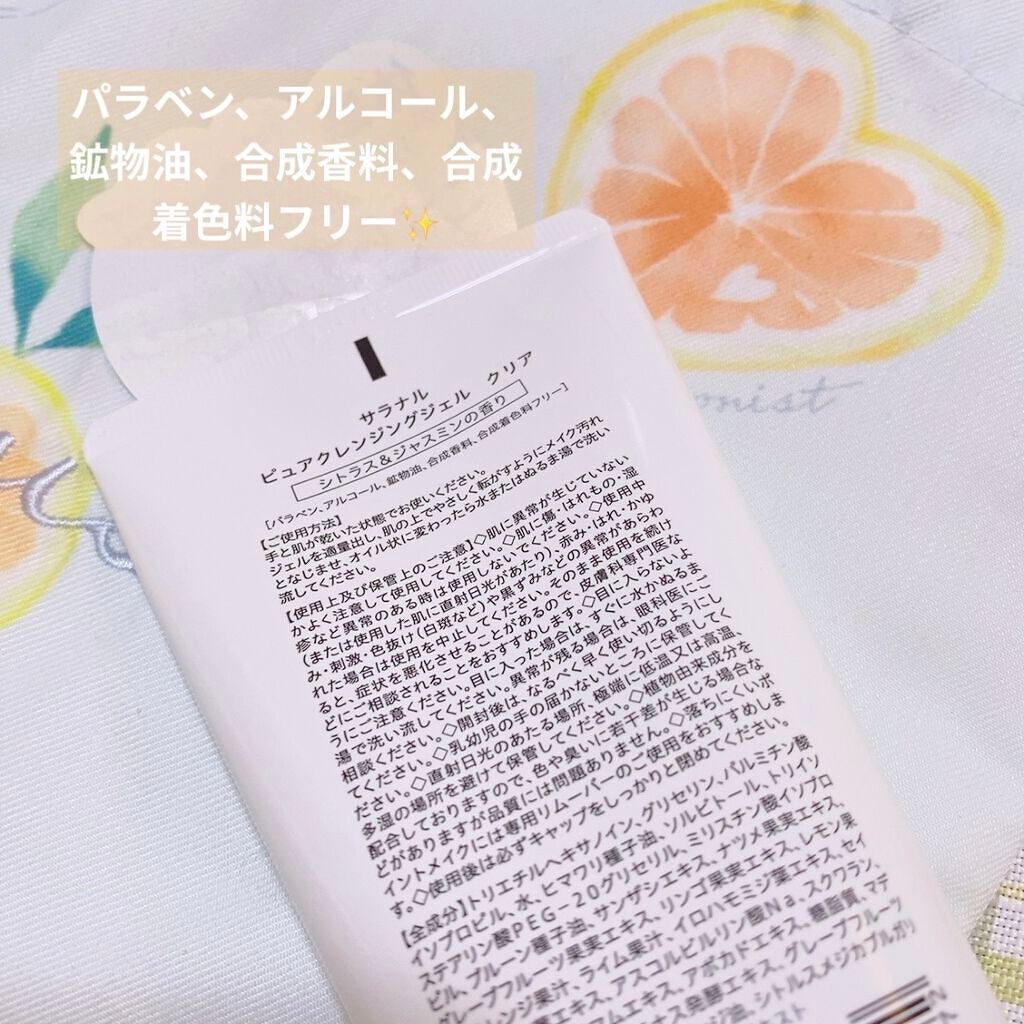 パラベン、アルコール、
鉱物油、合成香料、合成
着色料フリー✨
サラナル
ピュアクレンジングジェル クリア
シトラス&ジャスミンの香り
[パラベン、アルコール、鉱物油、合成香料、合成着色料フリー]
【ご使用方法】
手と肌が乾いた状態でお使いください。
ジェルを適量出し、肌の上でやさしく転がすようにメイク汚れ
となじませ、オイル状に変わったら水またはぬるま湯で洗い
流してください。
【使用上及び保管上のご注意】◇肌に異常が生じていない
かよく注意して使用してください。◇肌に傷・はれもの・湿
疹など異常のある時は使用しないでください。◇使用中
(または使用した肌に直射日光があたり)、赤み・はれ・かゆ
み・刺激・色抜け(白斑など)や黒ずみなどの異常があらわ
れた場合は使用を中止してください。そのまま使用を続け
ると、症状を悪化させることがあるので、皮膚科専門医な
どにご相談されることをおすすめします。◇目に入らないよ
うにご注意ください。目に入った場合は、すぐに水かぬるま
湯で洗い流してください。異常が残る場合は、眼科医にご
相談ください。◇開封後は、なるべく早く使い切るようにし
てください。◇乳幼児の手の届かないところに保管してく
ださい。◇直射日光のあたる場所、極端に低温又は高温、
多湿の場所を避けて保管してください。◇植物由来成分を
配合しておりますので、色や臭いに若干差が生じる場合な
どがありますが品質には問題ありません。◇落ちにくいポ
イントメイクには専用リムーバーのご使用をおすすめしま
す。◇使用後は必ずキャップをしっかりと閉めてください。
【全成分】トリエチルヘキサノイン、グリセリン、パルミチン酸
イソプロピル、水、ヒマワリ種子油、ソルビトール、トリイソ
ステアリン酸PEG-20グリセリル、ミリスチン酸イソプロ
ピル、プルーン種子油、サンザシエキス、ナツメ果実エキス、
グレープフルーツ果実エキス、リンゴ果実エキス、レモン果
レンジ果汁、ライム果汁、イロハモミジ葉エキス、セイ
エキス、アスコルビルリン酸Na、スクワラン、
ムエキス、アボカドエキス、糖脂質、マデ
ナス発酵エキス、グレープフルーツ
ジ油、シトルスメジカブルガリ
スト
onist